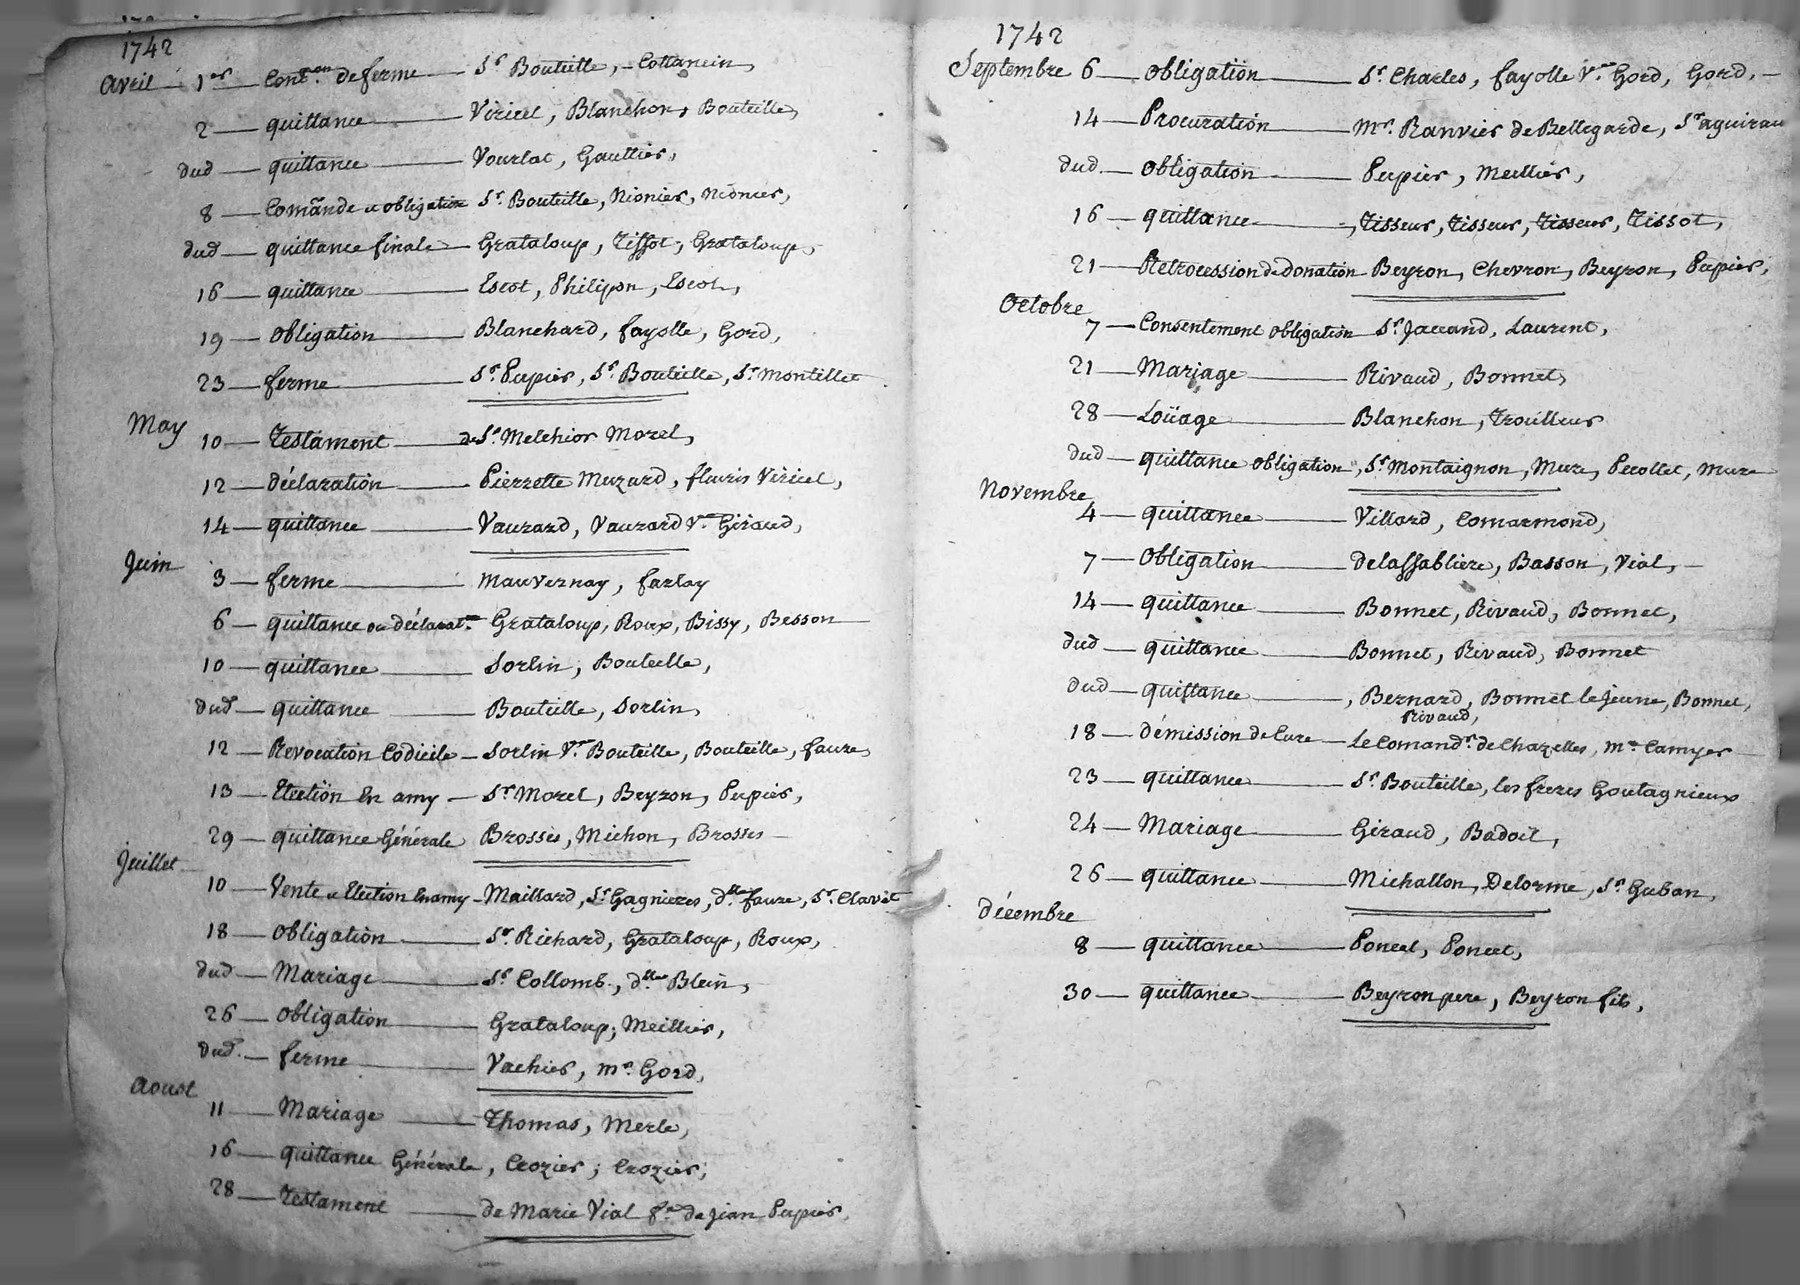 1742
Avril 1er Cont.on de ferme Sr Bouteille, Cottancin,
2 quittance Viricel, Blanchon, Bouteille,
dud quittance Vourlat, Gaultier,
8 Comãnde et obligation Sr. Bouteille, Nionier, Nionier,
dud quittance finale Grataloup, Tissot, Grataloup,
16 quittance Escot, Philipon, Escot,
19 obligation Blanchard, fayolle, Gord,
23 ferme Sr Pupier, Sr Bouteille, Sr Montillet
May 10 Testament de Sr Melchior Morel,
12 déclaration Pierrette Muzard, fleuris Viricel,
14 quittance Vauzard, Vauzard Ve Giraud,
Juin 3 ferme Mauvernay, farlay
6 quittance ou déclarat.on Grataloup, Roux, Bissy, Besson
10 quittance Sorlin, Bouteille,
dud quittance Bouteille, Sorlin,
12 Revocation Codicile Sorlin Ve Bouteille, Bouteille, faure,
13 Election En amy Sr Morel, Beyron, Pupier,
29 quittance Générale Brosse, Michon, Brosses
Juillet
10 Vente et Election En amy Maillard, Sr Gagnieres, dlle faure, Sr Clavet
18 obligation Sr. Richard, Grataloup, Roux,
dud Mariage Sr Collomb, dlle Blein,
26 obligation Grataloup, Meillier,
dud ferme Vachier, mr. Gord,
Aoust
11 Mariage Thomas, Merle,
16 quittance Générale, Crozier, Crozier,
28 Testament de Marie Vial fe de Jean Pupier,
1742
Septembre 6 obligation Sr. Charles, fayolle Ve Gord, Gord,
14 Procuration mr. Ranvier de Bellegarde, Sr aguirau
dud obligation Pupier, Meillier,
16 quittance Tisseur, Tisseur, Tisseur, Tissot,
21 Retrocession de donation Beyron, Chevron, Beyron, Pupier,
Octobre
7 Consentement obligation Sr. Jaccand, Laurent,
21 Mariage Rivaud, Bonnet,
28 Loüage Blanchon, Trouilleur
dud quittance obligation, Sr Montaignon, Mure, Pecollet, Mure
Novembre
4 quittance Villard, Comarmond,
7 obligation delassabliere, Basson, Vial,
14 quittance Bonnet, Rivaud, Bonnet,
dud quittance Bonnet, Rivaud, Bonnet
dud quittance, Bernard, Bonnet le jeune, Bonnet,
Rivaud,
18 démission de Cure Le Comandr. de Chazelles, mr Camyer
23 quittance Sr. Bouteille, les freres Goutagnieux
24 Mariage Giraud, Badoil,
26 quittance Michallon, Delorme, Sr Guban,
décembre
8 quittance Poncet, Poncet,
30 quittance Beyron pere, Beyron fils,